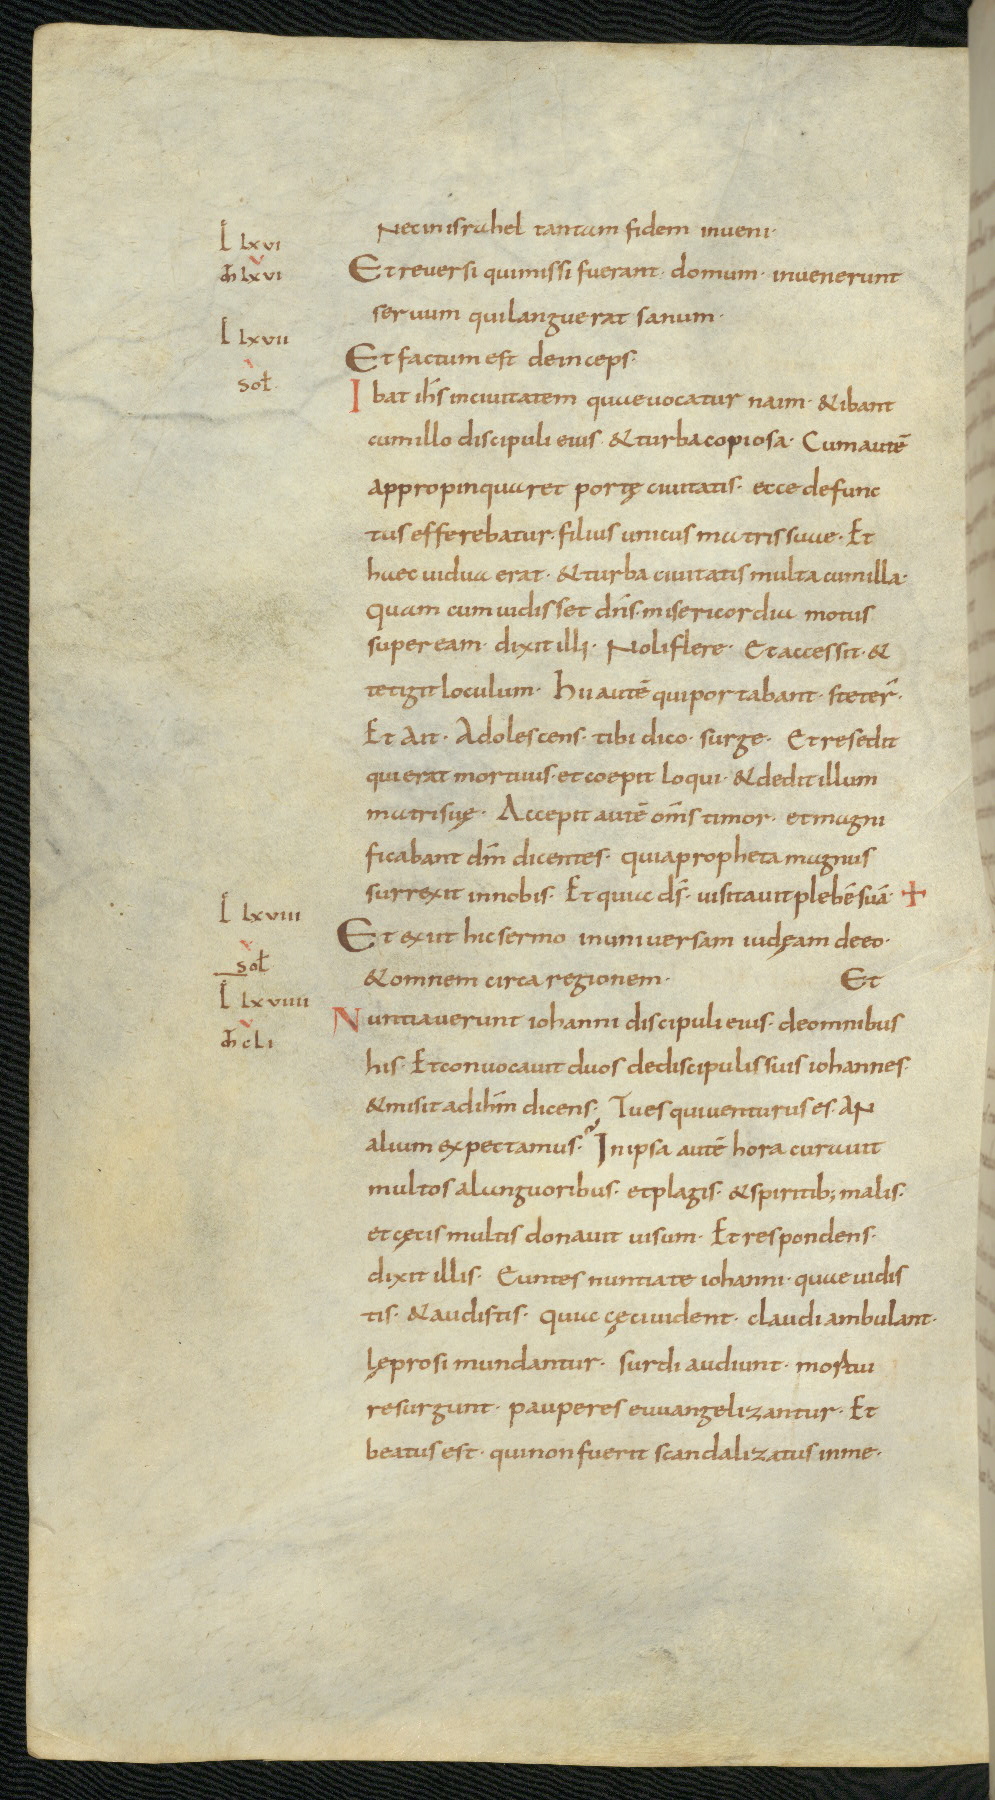 L lxvi
M lxvi
L lxvii
sol
L lxviii
sol
L lxviiii
M cli
Nec in israhel tantam fidem inveni·
Et reversi qui missi fuerant· domum· invenerunt
servum qui languerat sanum·
Et factum est deinceps·
Ibat ih̅s in civitatem quae vocatur naim· & ibant
cum illo discipuli eius· & turba copiosa· Cum autē
appropinquaret portę civitatis· ecce defunc
tus efferebatur· filius unicus matris suae· Et
haec vidua erat· & turba civitatis multa cum illa·
Quam cum vidisset dn̅s· misericordia motus
super eam· dixit illi· Noli flere· Et accessit· &
tetigit loculum· Hii autē qui portabant· steter̅·
Et ait· Adolescens· tibi dico· surge· Et resedit
qui erat mortuus· et coepit loqui· & dedit illum
matri suę· Accepit autē om̅s timor· et magni
ficabant dm̅ dicentes· quia propheta magnus
surrexit in nobis· Et quia ds̅· visitavit plebē suā· +
Et exiit hic sermo in universam iudęam de eo·
& omnem circa regionem· Et
Nuntiaverunt iohanni discipuli eius· de omnibus
his· Et convocavit duos de discipulis suis iohannes·
& misit ad ihm̅ dicens· Tu es qui venturus es· AN
alium expectamus· In ipsa autē hora curavit
multos a languoribus· et plagis· & spiritib; malis·
et cęcis multis donavit visum· Et respondens·
dixit illis· Euntes nuntiate iohanni· quae vidis
tis· & audistis· Quia cęci vident· claudi ambulant·
lęprosi mundantur· surdi audiunt· mortui
resurgunt· pauperes euuangelizantur· Et
beatus est· qui non fuerit scandalizatus in me·